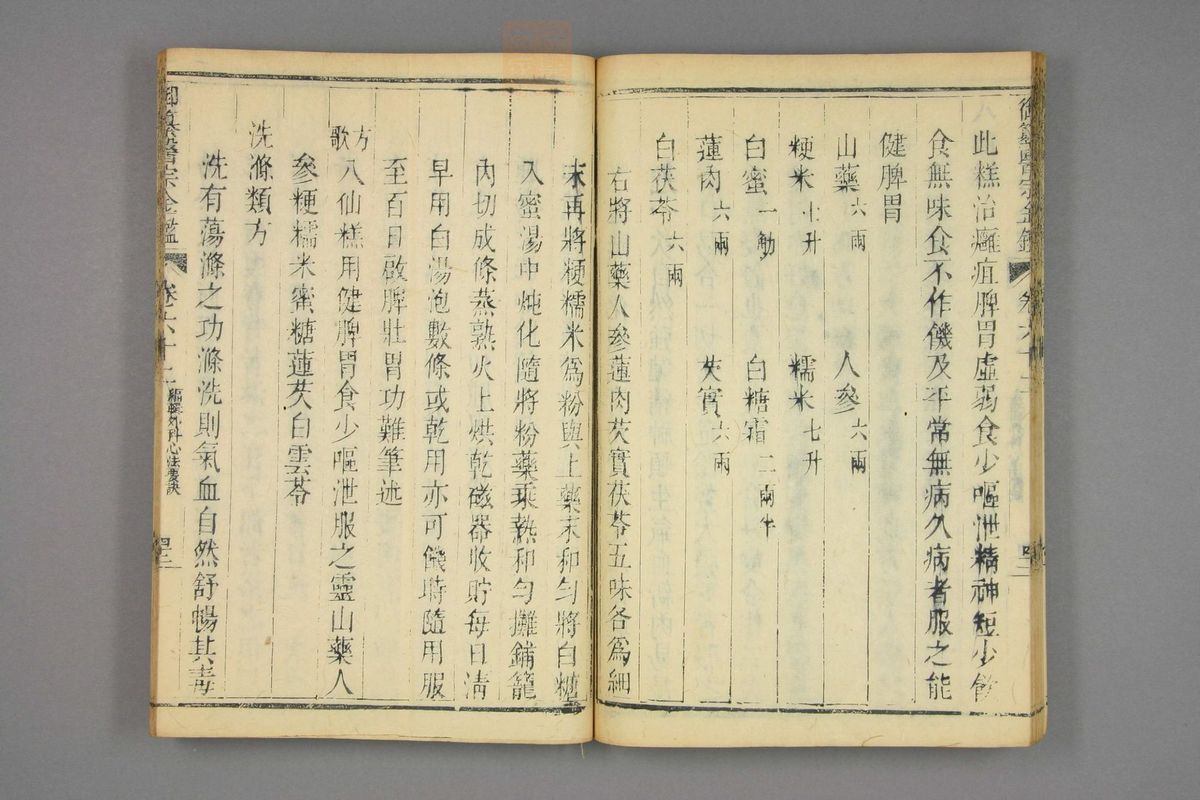 御纂醫宗金鑑 卷六十二
此糕治癰疽脾胃虛弱食少嘔泄精神短少飲
食無味食不作饑及平常無病久病者服之能
健脾胃
山藥六兩 人參六兩
粳米七升 糯米七升
白蜜一觔 白糖霜二兩半
蓮肉六兩 芡實六兩
白茯苓六兩
右將山藥人參蓮肉芡實茯苓五味各爲細
末再將粳糯米爲粉與上藥末和勻將白糖
入蜜湯中炖化隨將粉藥乘熱和勻攤鋪籠
內切成條蒸熟火上烘乾磁器收貯每日清
早用白湯泡數條或乾用亦可饑時隨用服
至百日啟脾壯胃功難筆述
方歌 八仙糕用健脾胃食少嘔泄服之靈山藥人
參粳糯米蜜糖蓮芡白雲苓
洗滌類方
洗有蕩滌之功滌洗則氣血自然舒暢其毒
御纂醫宗金鑑 卷六十二 編輯外科心法要訣